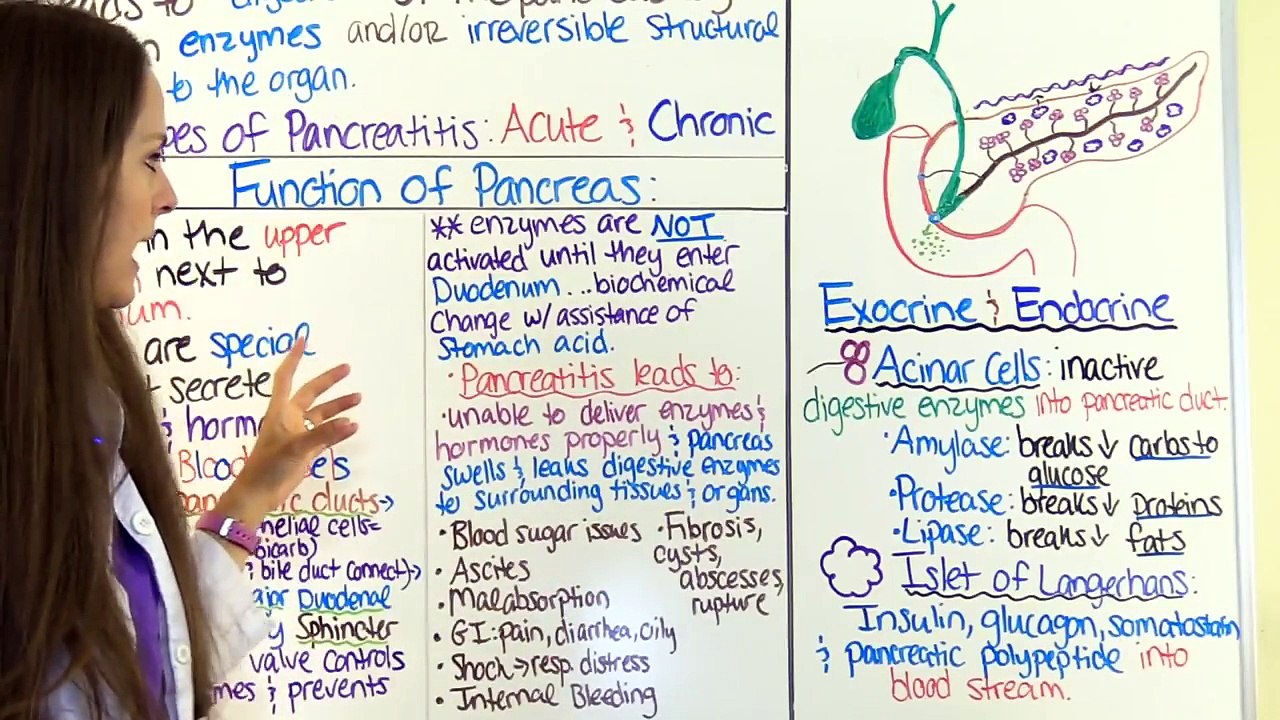 enzymes and/or irreversible structural
to the organ.
of Pancreatitis: Acute & Chronic
Function of Pancreas:
in the upper
next to
are special
secrete
& horm
Blood
ducts→
cells=
bicarb)
& bile duct connect)→
Duodenal
Sphincter
valve controls
& prevents
** enzymes are NOT
activated until they enter
Duodenum...biochemical
change w/ assistance of
stomach acid.
· Pancreatitis leads to:
·unable to deliver enzymes &
hormones properly & pancreas
swells & leaks digestive enzymes
to surrounding tissues & organs.
· Blood sugar issues
· Ascites
· Malabsorption
· GI: pain, diarrhea, oily
· Shock → resp. distress
· Internal Bleeding
· Fibrosis,
cysts,
abscesses,
rupture
Exocrine & Endocrine
Acinar Cells: inactive
digestive enzymes into pancreatic duct.
·Amylase: breaks ↓ carbs to
glucose
·Protease: breaks ↓ Proteins
·Lipase: breaks ↓ fats
Islet of Langerhans:
Insulin, glucagon, somatostatin
& pancreatic polypeptide into
blood stream.